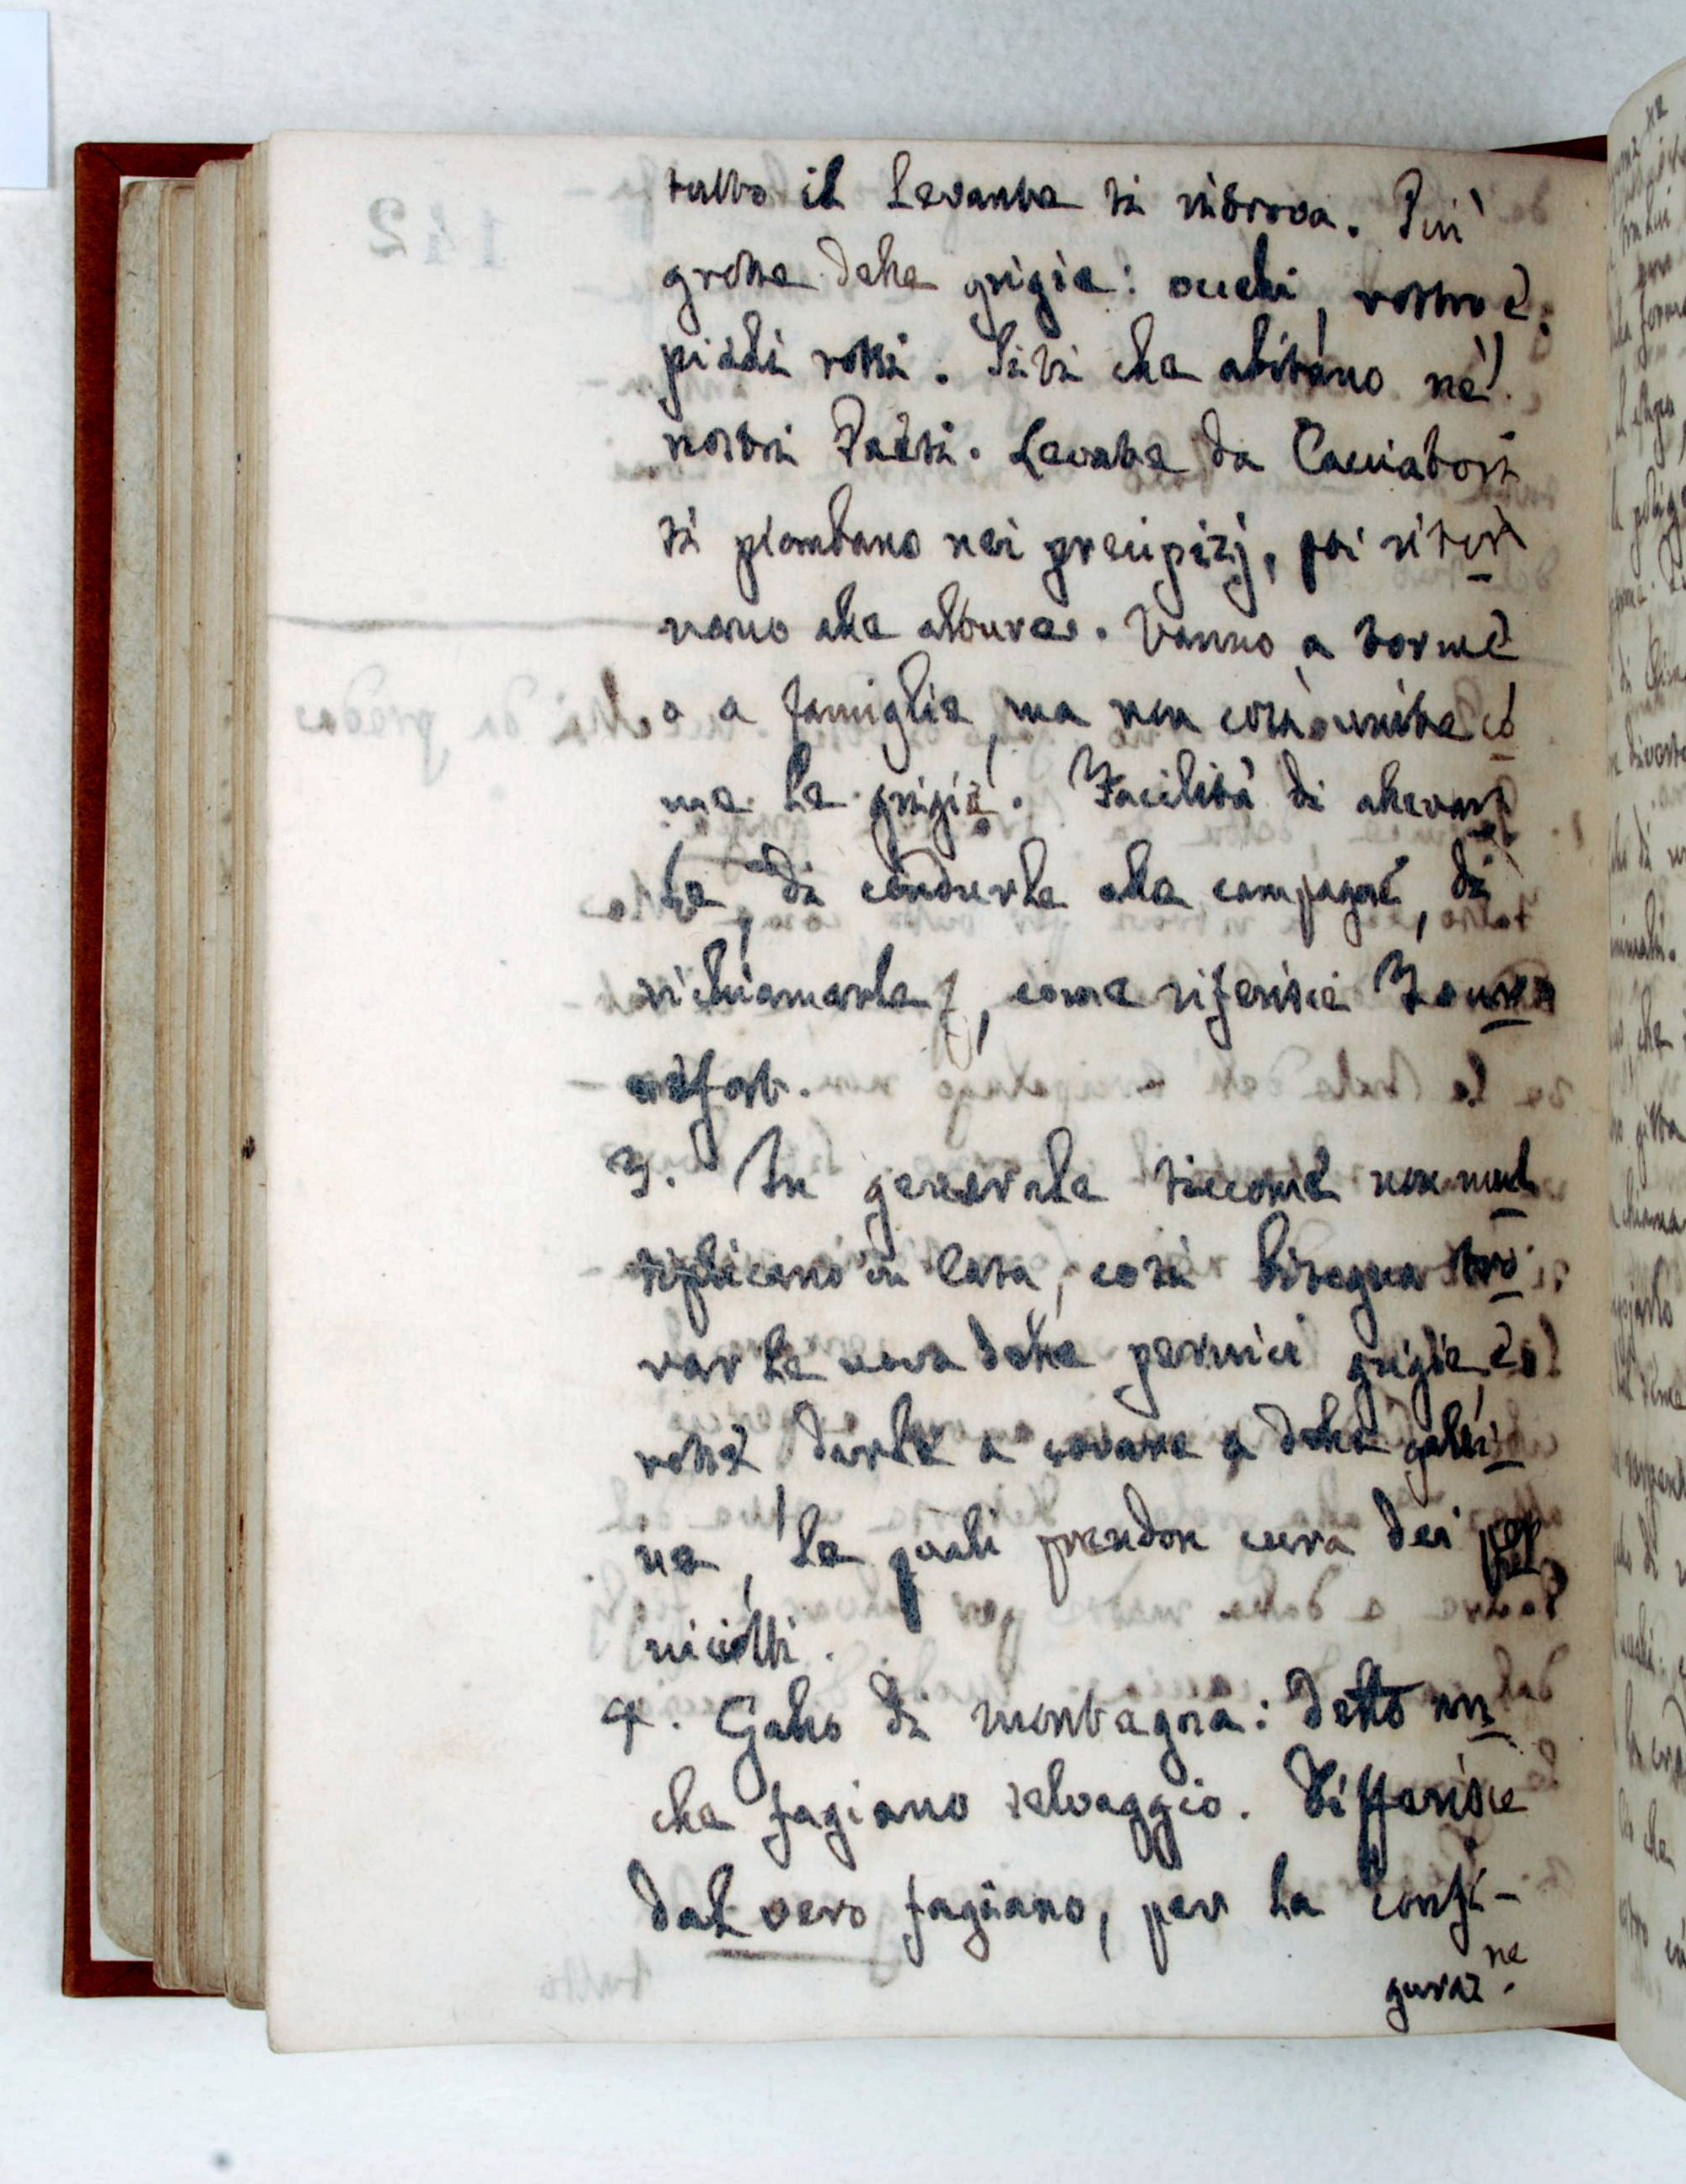 tutto il Levante si ritrova. Più
grosse delle grigie: occhi, rostro e
piedi rossi. Siti che abitano ne'
nostri Paesi. Levate da Cacciatori
si piombano nei precipizj, poi ritor
nano alle alture. Vanno a torme
o a famiglie, ma non così unite co
me le grigie. Facilità di allevar
le, di condurle alla campagne, di
richiamarle, come riferisce Tour
nefort.
3. In generale siccome non mul
tiplicano in Casa, così bisogna tro
var le uova delle pernici grigie e
rosse darle a covare a delle galli
ne, le quali prendon cura dei per
niciotti.
4. Gallo di montagna: detto an
che fagiano selvaggio. Differisce
dal vero fagiano, per la confi-
guraz.ne